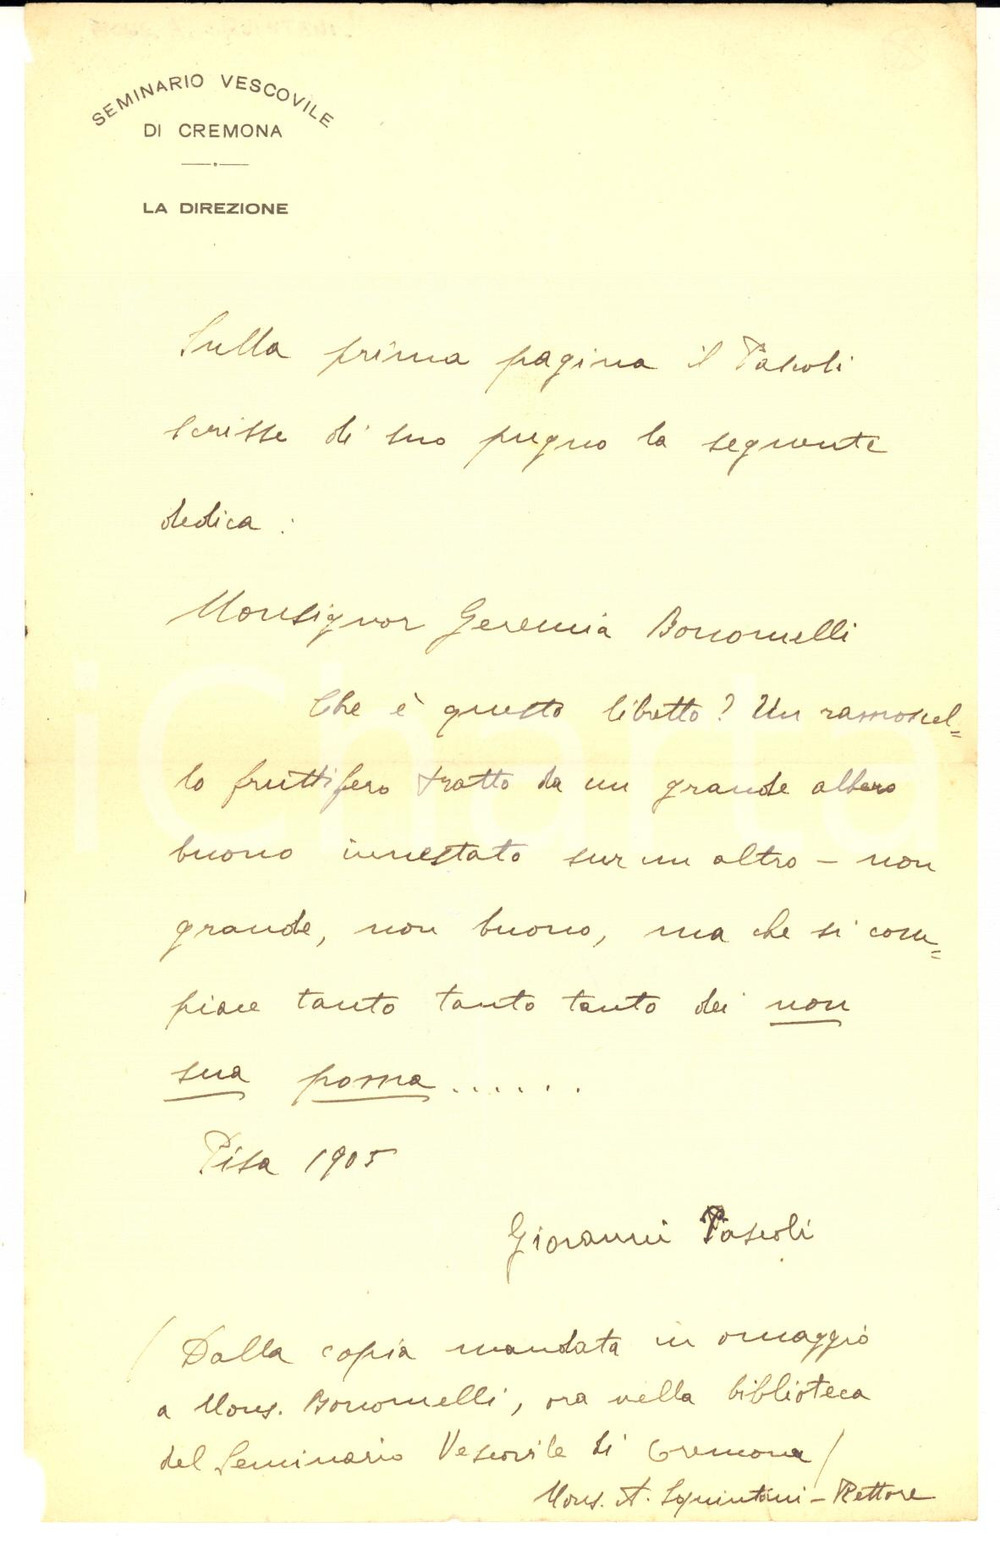 SEMINARIO VESCOVILE
DI CREMONA
LA DIREZIONE
Sulla prima pagina il Pascoli
scrisse di suo pugno la seguente
dedica :
Monsignor Geremia Bonomelli
Che è questo libretto? Un ramoscel=
lo fruttifero tratto da un grande albero
buono innestato sur un altro – non
grande, non buono, ma che si com=
piace tanto tanto tanto dei non
sua poma ......
Pisa 1905
Giovanni Pascoli
(Dalla copia mandata in omaggio
a Mons. Bonomelli, ora nella biblioteca
del Seminario Vescovile di Cremona)
Mons. A. Squintani – Rettore
iCharta